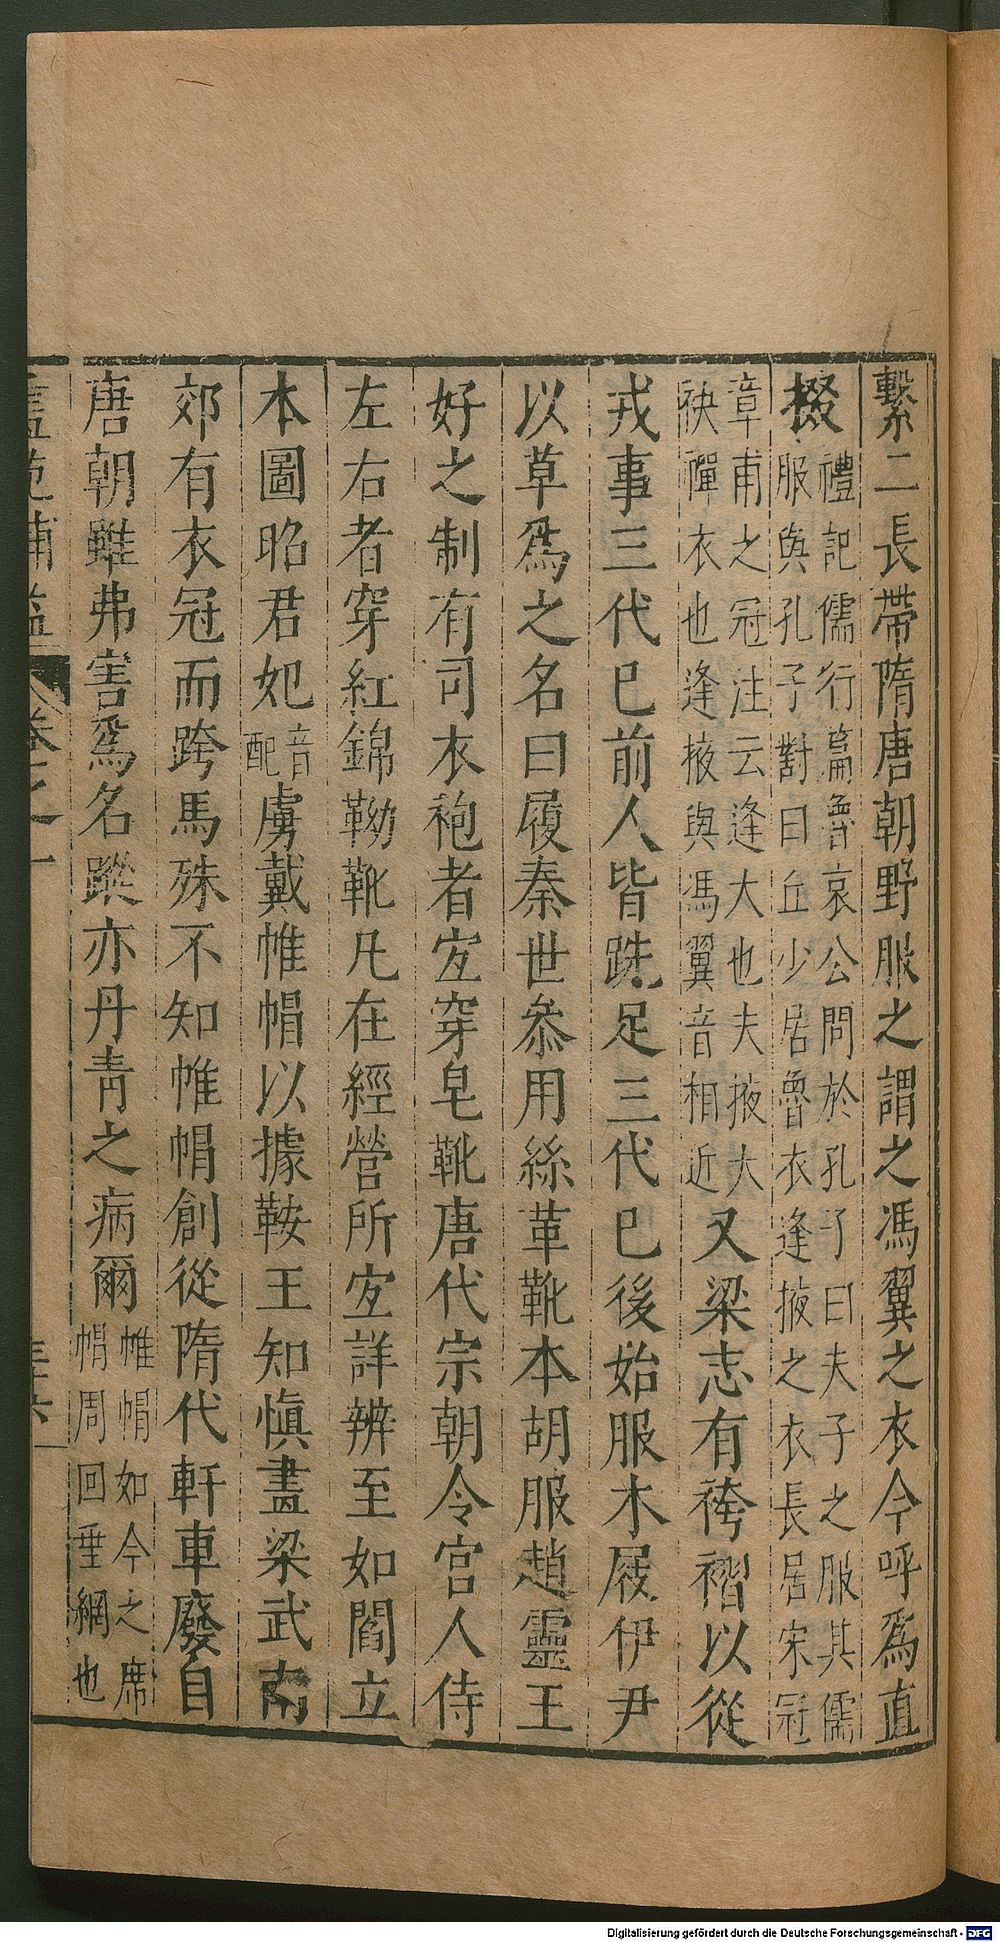 繫二長帶隋唐朝野服之謂之馮翼之衣今呼爲直
掇禮記儒行篇魯哀公問於孔子曰夫子之服其儒
服與孔子對曰丘少居魯衣逢掖之衣長居宋冠
章甫之冠注云逢大也夫掖大
袂襌衣也逢掖與馮翼音相近又梁志有袴褶以從
戎事三代已前人皆跣足三代已後始服木屐伊尹
以草爲之名曰履秦世參用絲革靴本胡服趙靈王
好之制有司衣袍者宜穿皂靴唐代宗朝令宮人侍
左右者穿紅錦靿靴凡在經營所宜詳辨至如閻立
本圖昭君妃音配虜戴帷帽以據鞍王知愼畫梁武南
郊有衣冠而跨馬殊不知帷帽創從隋代軒車廢自
唐朝雖弗害爲名蹤亦丹青之病爾帷帽如今之席
帽周回垂網也
卷之一
Digitalisierung gefördert durch die Deutsche Forschungsgemeinschaft - DFG